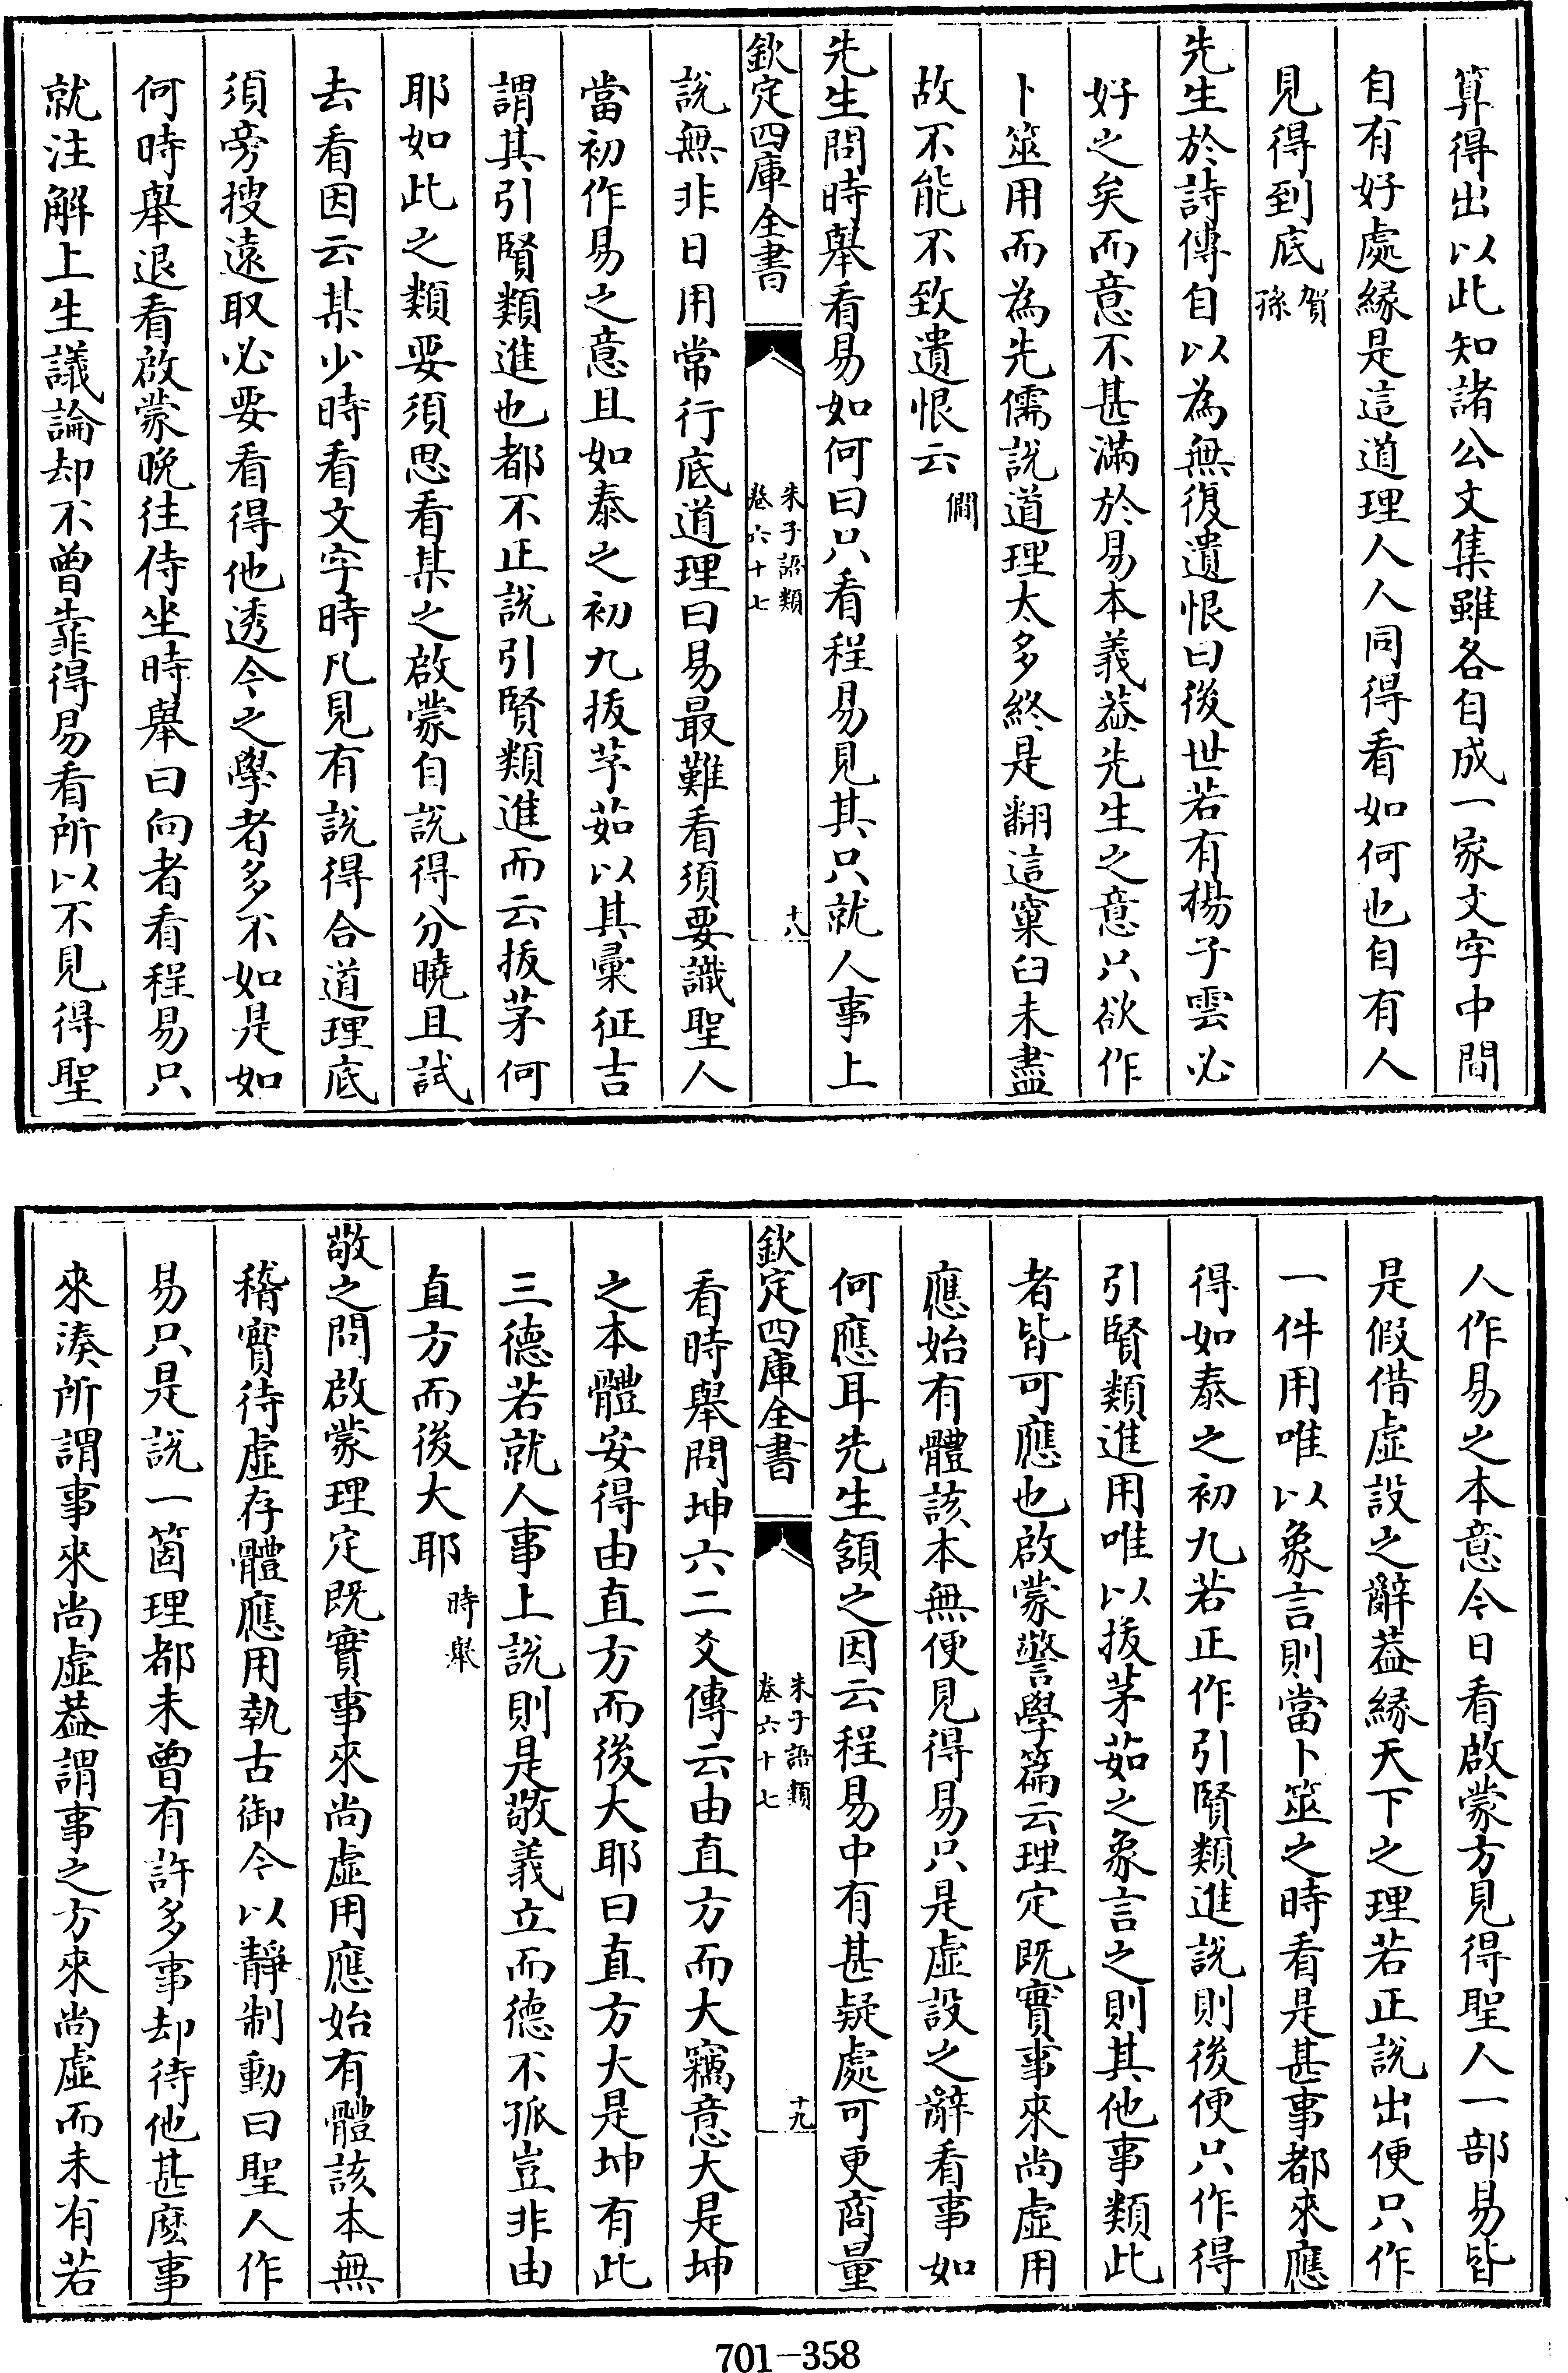 算得出以此知諸公文集雖各自成一家文字中間
自有好處緣是這道理人人同得看如何也自有人
見得到底賀孫
先生於詩傳自以為無復遺恨曰後世若有楊子雲必
好之矣而意不甚滿於易本義葢先生之意只欲作
卜筮用而為先儒說道理太多終是翻這窠臼未盡
故不能不致遺恨云僩
先生問時舉看易如何曰只看程易見其只就人事上
欽定四庫全書
朱子語類
卷六十七
十八
說無非日用常行底道理曰易最難看須要識聖人
當初作易之意且如泰之初九拔茅茹以其彚征吉
謂其引賢類進也都不正說引賢類進而云拔茅何
耶如此之類要須思看某之啟蒙自說得分曉且試
去看因云某少時看文字時凡見有說得合道理底
須旁搜遠取必要看得他透今之學者多不如是如
何時舉退看啟蒙晩往侍坐時舉曰向者看程易只
就注解上生議論却不曽靠得易看所以不見得聖
人作易之本意今日看啟蒙方見得聖人一部易皆
是假借虛設之辭葢緣天下之理若正說出便只作
一件用唯以象言則當卜筮之時看是甚事都來應
得如泰之初九若正作引賢類進說則後便只作得
引賢類進用唯以拔茅茹之象言之則其他事類此
者皆可應也啟蒙警學篇云理定既實事來尚虛用
應始有體該本無便見得易只是虛設之辭看事如
何應耳先生頷之因云程易中有甚疑處可更商量
欽定四庫全書
朱子語類
卷六十七
十九
看時舉問坤六二爻傳云由直方而大竊意大是坤
之本體安得由直方而後大耶曰直方大是坤有此
三德若就人事上說則是敬義立而德不孤豈非由
直方而後大耶時舉
敬之問啟蒙理定既實事來尚虛用應始有體該本無
稽實待虛存體應用執古御今以靜制動曰聖人作
易只是說一箇理都未曽有許多事却待他甚麽事
來湊所謂事來尚虛葢謂事之方來尚虛而未有若
701-358